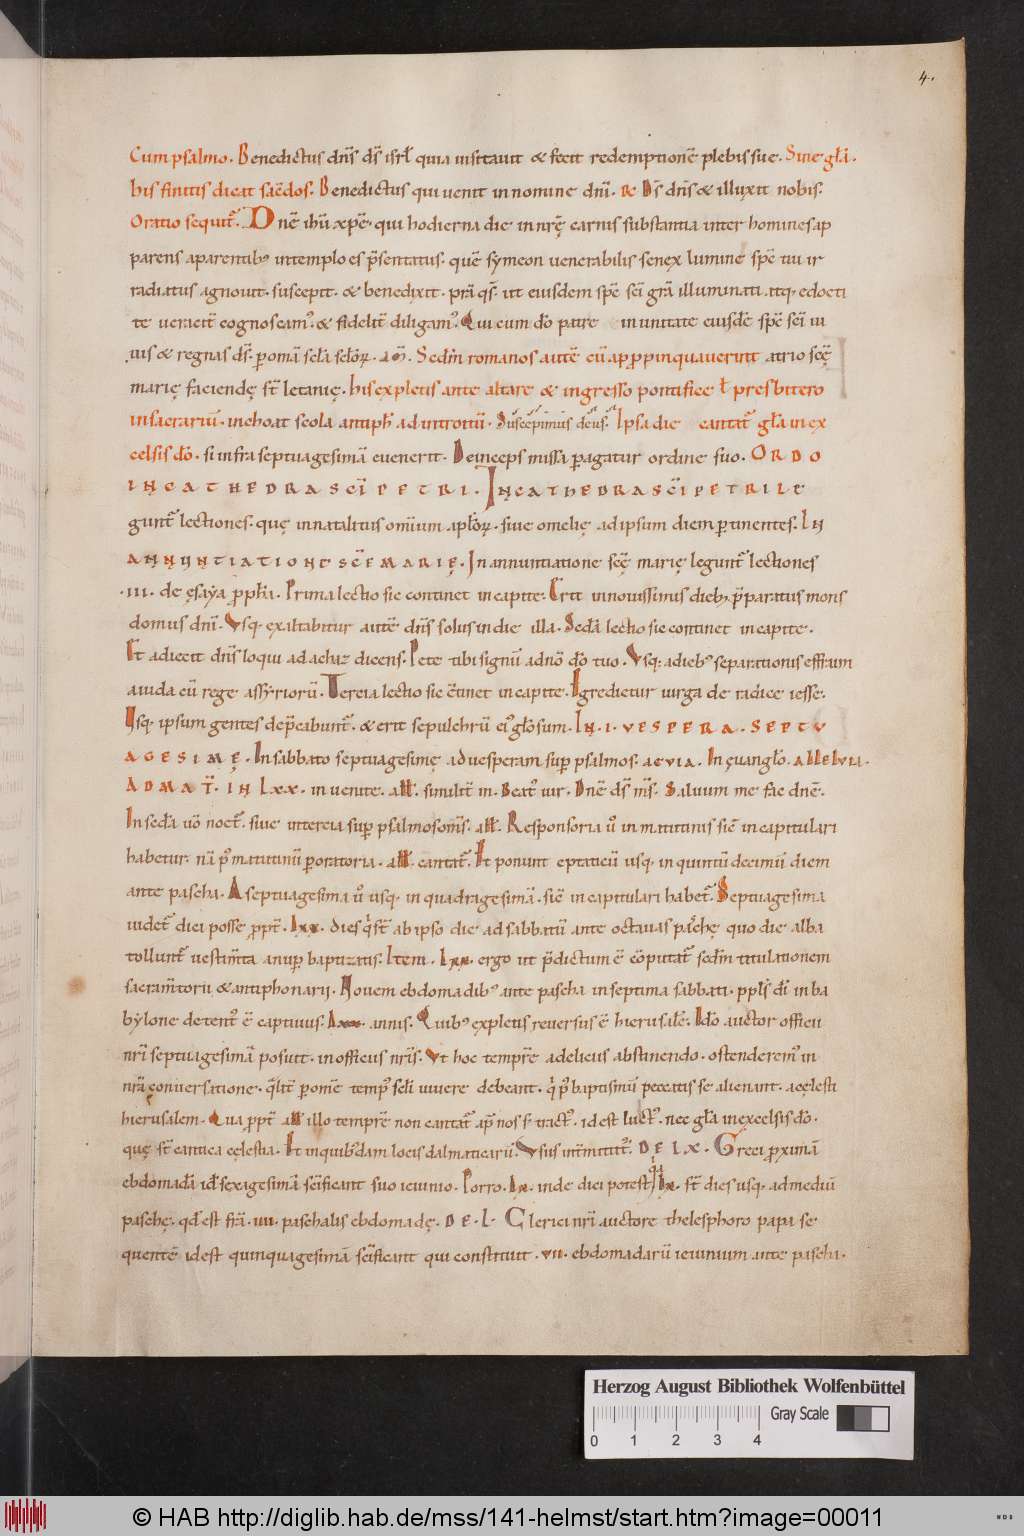 4.
Cum psalmo. Benedictus dn̄s d̄s isrl̄ quia uisitauit & fecit redemptionē plebis sue. Sine gl̄a.
his finitis dicat sac̄dos. Benedictus qui uenit in nomine dn̄i. D̄s dn̄s & illuxit nobis.
Oratio sequit̄. Dn̄e ih̄u xp̄e. qui hodierna die in nr̄ę carnis substantia inter homines ap
parens a parentib; in templo es p̄sentatus. quē symeon uenerabilis senex lumine sp̄c tui ir
radiatus agnouit. suscepit. & benedixit. p̄ra q̄s. ut eiusdem sp̄c sc̄i gr̄a illuminati. atq; edocti
te ueracit̄ cognoscam᷒. & fidelit̄ diligam᷒. Qui cum dō patre in unitate eiusdē sp̄c sc̄i ui
uis & regnas d̄s. p omā scl̄a scl̄oꝝ. am̄. Sedm̄ romanos autē cū appropinquauerint atrio sc̄ę
marię faciendę st̄ letanię. His expletis ante altare & ingresso pontifice ł presbitero
in sacrariū. inchoat scola antiph̄ ad introitū. Suscepimus deus. Ipsa die cantat̄ gl̄a in ex
celsis dō. si infra septuagesimā euenerit. Deinceps missa pagatur ordine suo. ORDO
IN CATHEDRA SCĪ PETRI. IN CATHEDRA SCĪ PETRI LE
gunt̄ lectiones. quę in nataliciis omīum apl̄oꝝ. siue omelię ad ipsum diem ptinentes. IN
ANNUNTIATIONE SCĒ MARIĘ. In annuntiatione sc̄ę marię legunt̄ lectiones
.III. de ęsaya proph̄a. Prima lectio sic continet in capite. Erit in nouissimis dieb; p̄paratus mons
domus dn̄i. Usq; exaltabitur autē dn̄s solus in die illa. Sedā lectio sic continet in capite.
Et adiecit dn̄s loqui ad achaz dicens. Pete tibi signū a dn̄o dō tuo. Usq; a dieb; separationis effraim
a iuda cū rege assyriorū. Tercia lectio sic c̄tinet in capite. Egredietur uirga de radice iesse.
Usq; ipsum gentes dep̄cabunt̄. & erit sepulchrū ei᷒ gl̄osum. IN .I. VESPERA. SEPTV
AGESIMĘ. In sabbato septuagesimę ad uesperam sup psalmos. AEVIA. In ęuanglō. ALLELVIA.
AD MAT̄. IN LXX. in uenite. all̄. similit̄ in. Beat᷒ uir. Dn̄e d̄s m̄s. Saluum me fac dn̄e.
In sedā ūo noct̄. siue in tercia sup psalmos om̄s. all̄. Responsoria ū in matutinis sic̄ in capitulari
habetur. nā p᷒ matutinū p oratoria. all̄. cantat̄. Et ponunt eptaticū usq; in quintū decimū diem
ante pascha. A septuagesima ū usq; in quadragesimā. sic̄ in capitulari habet̄. Septuagesima
uidet̄ dici posse propt̄. LXX. dies q̄ st̄ ab ipso die ad sabbatū ante octauas paschę quo die alba
tollunt̄ uestim̄ta a nup baptizatis. Item. LXX. ergo ut p̄dictum ē cōputat̄ sedm̄ titulationem
sacram̄torū & antiphonarii. Nouem ebdomadib; ante pascha in septima sabbati. ppl̄s dī in ba
bylone detent᷒ ē captiuus. LXX. annis. Quib; expletis reuersus ē hierusalē. Idō auctor officii
nr̄i septuagesimā posuit. in officiis nr̄is. Ut hoc tempr̄e a deliciis abstinendo. ostenderem᷒ in
nr̄a conuersatione. q̄lit̄ p om̄e temp᷒ sc̄li uiuere debeant. q̄ p᷒ baptismū peccatis se alienant. a cęlesti
hierusalem. Qua propt̄ all̄ illo tempr̄e non cantat̄ ap̄ nos s; tract᷒. id est luct᷒. nec gl̄a in excelsis dō.
quę st̄ cantica cęlestia. Et in quib;dam locis dalmaticarū. Usus int̄mittit̄. DE LX. Greci proximā
ebdomadā id ē sexagesimā sc̄ificant suo ieiunio. Porro. LX. inde dici potest q̄a LX. st̄ dies usq; ad mediū
paschę. qd̄ est fr̄a. IIII. paschalis ebdomadę. DE. L. Clerici nr̄i auctore thelesphoro papa se
quentē id est quinquagesimā sc̄ificant qui constituit. VII. ebdomadarū ieiunium ante pascha.
Herzog August Bibliothek Wolfenbüttel
Gray Scale
0 1 2 3 4
© HAB http://diglib.hab.de/mss/141-helmst/start.htm?image=00011